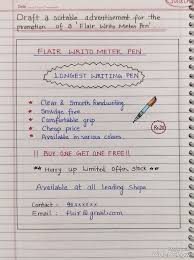 Date
Draft a suitable advertisement for the
promotion of a 'Flair Writo Meter Pen'
FLAIR WRITO METER PEN
LONGEST WRITING PEN
★ Clear & Smooth handwriting
★ Smudge free
★ Comfortable grip
★ Cheap price
★ Available in various colours.
Rs20
!! BUY ONE GET ONE FREE!!
** Hurry up Limited Offer Stock **
Available at all leading Shops
Contact :
Email : flair@gmail.com